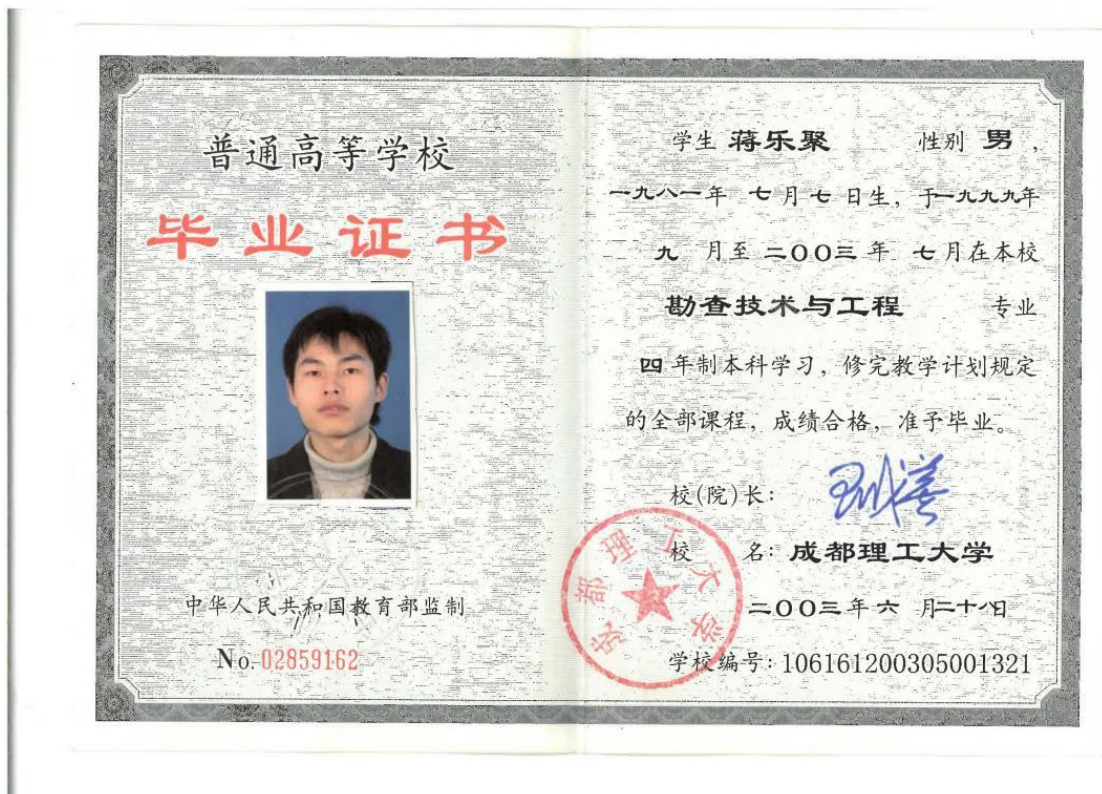 普通高等学校
毕业证书
中华人民共和国教育部监制
No. 02859162
学生 蒋乐聚 性别 男,
一九八一年 七月七日生,于一九九九年
九 月至 二〇〇三年 七月在本校
勘查技术与工程 专业
四 年制本科学习,修完教学计划规定
的全部课程,成绩合格,准予毕业。
校(院)长:
校 名: 成都理工大学
二〇〇三年六 月二十八日
学校编号: 106161200305001321
成都理工大学